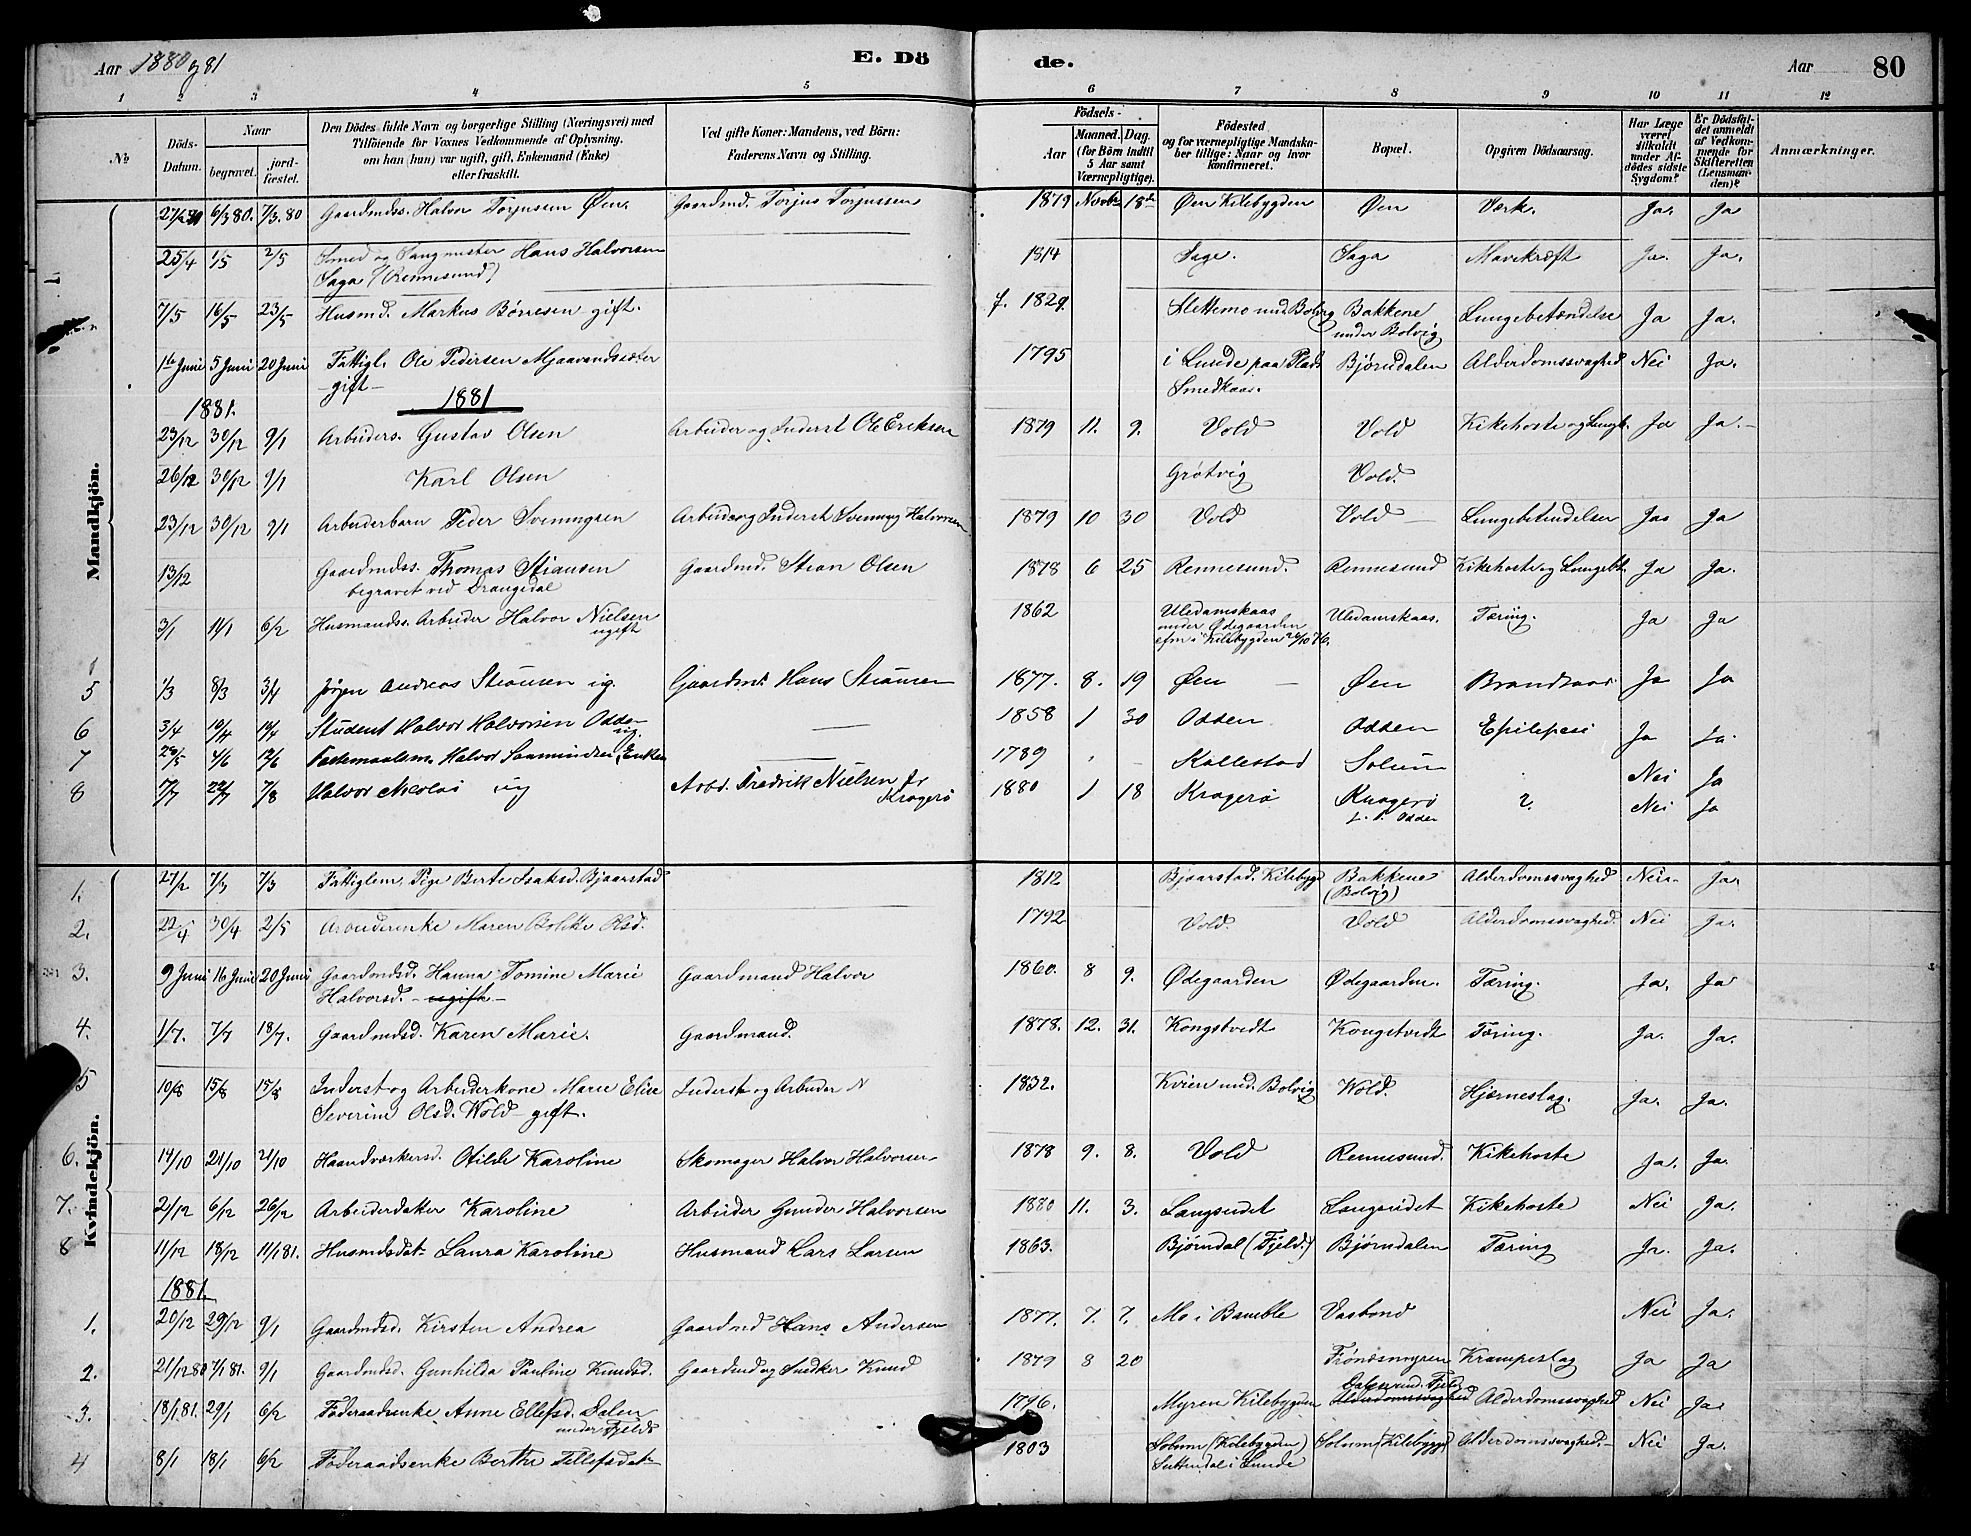 Aar 1880 og 81
E. Dö de.
Aar 80
1 2 3 4 5 6 7 8 9 10 11 12
No
Döds-Datum.
Naar
begravet.
jord-fæstet.
Den Dödes fulde Navn og borgerlige Stilling (Næringsvei) med
Tilföiende for Voxnes Vedkommende af Oplysning,
om han (hun) var ugift, gift, Enkemand (Enke)
eller fraskilt.
Ved gifte Koner: Mandens, ved Börn:
Faderens Navn og Stilling.
Födsels-
Aar
Maaned. Dag.
(for Börn indtil
5 Aar samt
Værnepligtige).
Födested
og for værnepligtige Mandska-
ber tillige: Naar og hvor
konfirmeret.
Bopæl.
Opgiven Dödsaarsag.
Har Læge
været
tilkaldt
under Af-
dödes sidste
Sygdom?
Er Dödsfal-
det anmeldt
af Vedkom-
mende for
Skifteretten
(Lensman-
den)?
Anmærkninger.
Mandkjön.
6/3 80. 7/3.80 Gaardmdss. Halvor Torjussen Øen. Gaardmd. Torjus Torjussen 1879 Novbr 18de Øen Kilebygden Øen Værk. Ja. Ja
25/4 1/5 2/5 Smed og Sangmester Hans Halvorsen 1814 Sage. Saga Mavekræft Ja. Ja.
Saga (Rennesund)
7/5 16/5 23/5 Husmd. Markus Børresen gift. f. 1829 Slettemo und. Bolvig Bakkene Lungebetændelse Ja Ja.
under Bolvig
1ste Juni 5 Juni 20 Juni Fattigl. Ole Pedersen Mjaavandsæter 1795 i Lunde paa Plads Bjørndalen Alderdomssvaghed Nei Ja.
gift Smedkaas.
1881. 1881
23/12 30/12 9/1 Arbeiders. Gustav Olsen Arbeider og Inderst Ole Eriksen 1879 11. 9. Vold Vold Kikehoste og Lungb. Ja Ja.
26/12 30/12 9/1 Karl Olsen Grøtvig Vold.
23/12 30/12 9/1 Arbeiderbarn Peder Svenningsen Arbeider og Inderst Svennug Halvorsen 1879 10 30 Vold Vold Lungebetændelse Ja Ja
13/12 Gaardmdss. Thomas Stiansen Gaardmd. Stian Olsen 1878 6 25 Rennesund. Rennesund Kikehoste og Lungebt. Ja Ja.
begravet ved Drangedal
3/1 14/1 6/2 Husmandss. Arbeider Halvor Nielsen 1862 Uledamskaas Uledamskaas. Tæring. Ja Ja
ugift under Ødegaarden
cfm i Kilebygden
5 1/3 8/3 3/4 Jørgen Andreas Stiansen ug. Gaardmd. Hans Stiansen 1877. 8. 19 Øen Øen Brandsaar Ja Ja
6 3/4 10/4 19/4 Student Halvor Halvorsen Odden ug. 1858 1 30 Odden Odden Epilepsi Ja Ja.
7 28/5 4/6 12/6 Halvor Saamundsen, Enkem 1789 Kallestad Solum Nei Ja
8 7/7 22/7 7/8 Halvor Nicolai ug Arbd. Fredrik Nielsen fr Kragerø 1880 1 18 Kragerø Kragerø ? Nei Ja
f. t. Odden
Kvindekjön.
1. 27/2 7/3 7/3 Fattiglem, Pige Berte Isaksd. Bjaarstad 1812 Bjaarstad. Kilebygd Bakkene Alderdomssvaghed Nei Ja.
(Bolvig)
2. 22/4 30/4 2/5 Arbeiderenke Maren Bolette Olsd. 1792 Vold. Vold Alderdomssvaghed. Nei Ja.
3. 9 Juni 16 Juni 20 Juni Gaardmdsd. Hanna Tomine Marie Gaardmand Halvor 1860. 8 9. Ødegaarden Ødegaarden. Tæring. Ja. Ja
Halvorsd. ugift
4. 1/7. 7/7 18/7. Gaardmdsd. Karen Marie. Gaardmand. 1878. 12. 31. Kongstvedt Kongstvedt Tæring. Ja. Ja.
5 10/8 15/8 15/8 Inderst og Arbeiderkone Maren Elise Inderst og Arbeider N 1832. Kvien und. Bolvig Wold. Hjærneslag. Ja. Ja.
Severine Olsd. Wold gift.
6. 14/10 21/10 21/10 Haandværkersd. Otilde Karoline Skomager Halvor Halvorsen 1878 9. 8. Vold Rennesund. Kikehoste Ja. Ja.
7. 2/12 6/12 26/12 Arbeiderdatter Karoline Arbeider Gunder Halvorsen 1880 11. 3. Langsudet Langsudet Kikehoste Nei Ja.
8 11/12 18/12 11/1 81. Husmdsdat. Laura Karoline Husmand Lars Larsen 1863. Bjørndal (Fjeld.) Bjørndalen Tæring Ja. Ja.
1881.
1. 20/12 29/12 9/1 Gaardmdsd. Kirsten Andrea Gaardmd Hans Andersen 1877. 7. 7. Mo i Bamble Vasbond Nei Ja.
2. 21/12 80 7/1 81. 9/1 Gaardmdsd. Gunhilda Pauline Knudsd. Gaardmd og Snedker Knud 1879 8 20 Frøndsmyren Krampeslag Ja Ja
3. 18/1 81. 29/1 6/2 Føderaadsenke Anne Ellefsd. Dalen 1796. Myren Kilebygden Dalen und. Fjeld Alderdomssvaghed Nei Ja.
under Fjeld
4 8/1 18/1 6/2 Føderaadsenke Berthe Tellefsdat 1803 Solum (Kilebygden) Solum (Kilebygd) Alderdomssvaghed. Nei Ja.
i Lunde